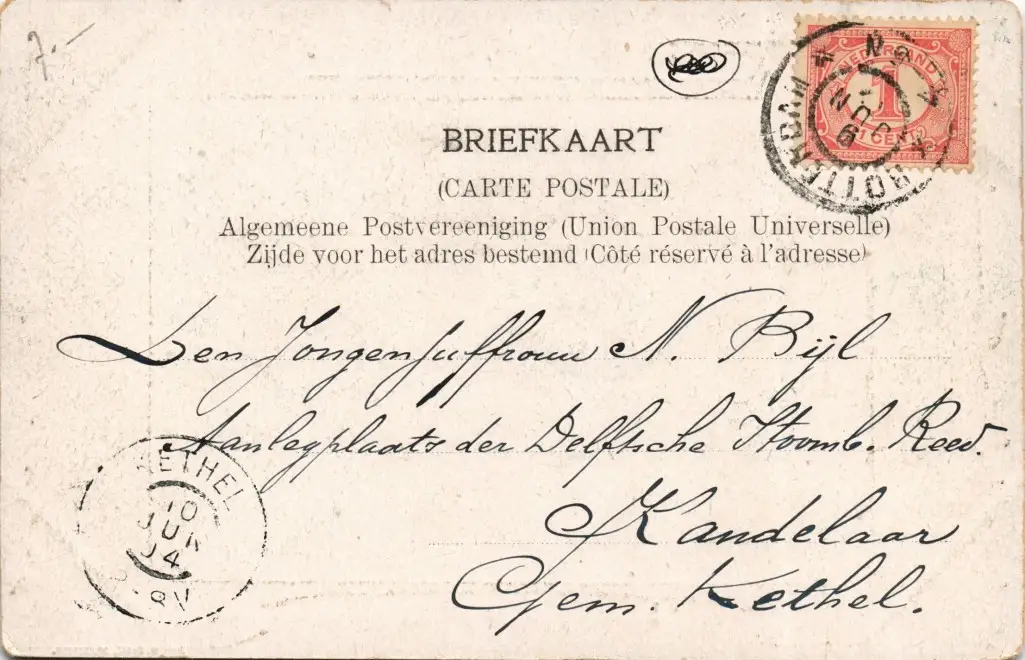 7.-
NEDERLAND
1
1 CENT
ROTTERDAM
JUN
BRIEFKAART
(CARTE POSTALE)
Algemeene Postvereeniging (Union Postale Universelle)
Zijde voor het adres bestemd (Côté réservé à l'adresse)
Den Jongenjuffrouw N. Bijl
Aanlegplaats der Delftsche Stoomb. Reed.
Kandelaar
Gem. Kethel.
KETHEL
10
JUN
04
8V